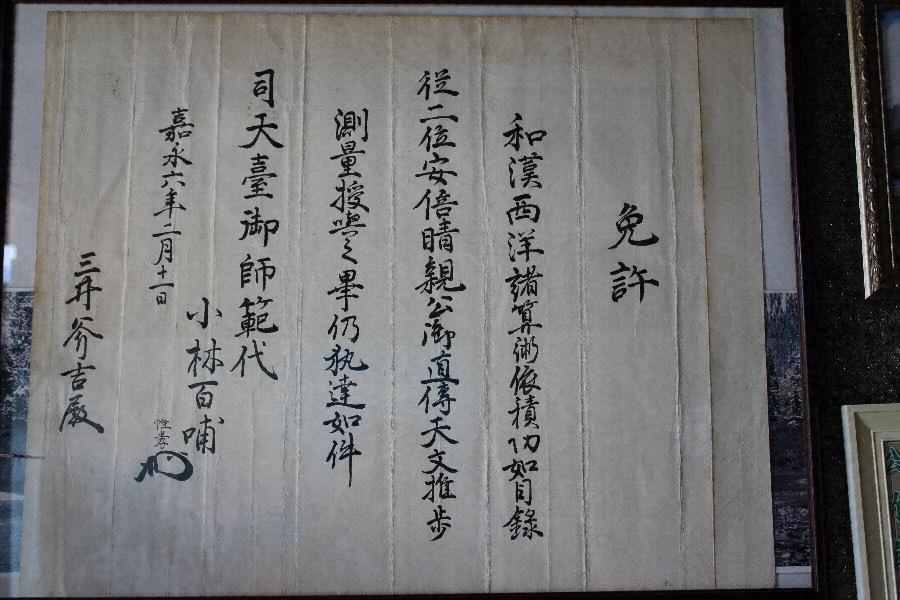 免許
和漢西洋諸算術依積功如目錄
従二位安倍晴親公御直傳天文推歩
測量授與之畢仍執達如件
司天臺御師範代
小林百哺
惟孝
嘉永六年二月十一日
三井弥吉殿